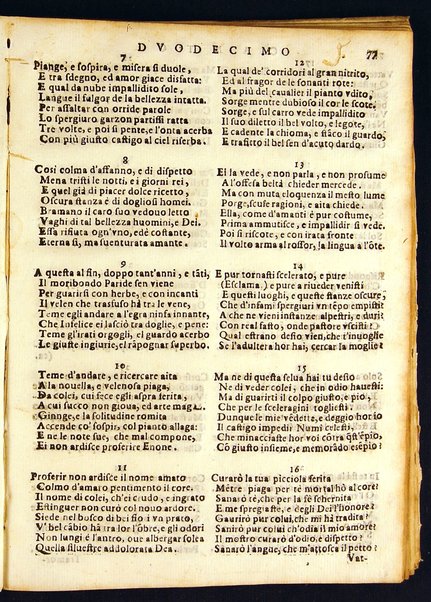 DVODECIMO
77
7
Piange, e sospira, e misera si duole,
E tra sdegno, ed amor giace disfatta:
E qual da nube impallidito sole,
Langue il fulgor de la bellezza intatta.
Per assaltar con orride parole
Lo spergiuro garzon partissi ratta
Tre volte, e poi si pente, e l'onta acerba
Con più giusto castigo al ciel riserba.
8
Cosi colma d'affanno, e di dispetto
Mena tristi le notti, e i giorni rei,
E quel già di piacer dolce ricetto,
Oscura stanza è di dogliosi homei.
Bramano il caro suo vedouo letto
Vaghi di tal bellezza huomini, e Dei.
Essa rifiuta ogn'vno, ed è costante,
Eterna sì, ma suenturata amante.
9
A questa al fin, doppo tant'anni, e tãti,
Il moribondo Paride sen viene
Per guarirsi con herbe, e con incanti
Il velen che trasfuso hà tra le vene,
Teme egli andare a l'egra ninfa innante,
Che infelice ei lasciò tra doglie, e pene:
Teme gl'irati orgogli, el guardo acerbo
Le giuste ingiurie, el rãpognar superbo.
10
Teme d'andare, e ricercare aita
A la nouella, e velenosa piaga,
Da colei, cui fece egli aspra ferita,
A cui succo non gioua, ed arte maga.
Giunge, e la solitudine romita
Accende co' sospir, col pianto allaga:
E ne le note sue, che mal compone,
Ei non ardisce proserire Enone.
11
Proferir non ardisce il nome amato
Colmo d'amaro pentimento il core.
Il nome di colei, ch'ei crudo, e ingrato
Estinguer non curò col nouo ardore.
Siede nel bosco di bei fiori vn prato,
V' bel cãbio hà tra lor l'õbre, e gli odori
Non lungi è l'antro, oue albergar solea
Quella siluestre addolorata Dea.
12
La qual de' corridori al gran nitrito,
Ed al fragor de le sonanti rote:
Ma più del caualier il pianto vdito,
Sorge mentre dubioso il cor le scote.
Sorge, e sul carro vede impallidito
Il suo diletto il bel volto, e le gote,
E cadente la chioma, e stãco il guardo,
E trafitto il bel sen d'acuto dardo.
13
Ei la vede, e non parla, e non prosume
A l'offesa beltà chieder mercede.
Ma con muta eloquenza il mesto lume
Porge, scuse ragioni, e aita chiede.
Ella, come d'amanti è pur costume,
Prima ammutisce, e impallidir si vede.
Poi si riscote, e con turata fronte
Il volto arma al rossor, la lingua a l'õte.
14
E pur tornasti scelerato, e pure
(Esclama.) e pure a riueder venisti
E questi luoghi, e queste stanze oscure,
Che d'infami spergiuri vn tẽpo empisti?
A che ne vieni in stanze alpestri, e duri
Con real fasto, onde pastore vscisti?
Qual estrano desio vien, che t'inuoglie
Se l'adultera hor hai, cercar la moglie?
15
Ma ne di questa selua hai tu desio
Ne di veder colei, che in odio hauesti:
Ma di guarirti il colpo giusto, e pio,
Che per le sceleragini togliesti.
Dunque le mie vẽdette, e deggio hor io
Il castigo impedir Numi celesti.
Che minacciaste hor voi cõtra qst'epio,
Cõ giusto insieme, e memorãdo esẽpio?
16
Curarò la tua picciola ferita
Mẽtre piaga per tè mortal hò al cor?
Sanarò te, che per la fè schernita
E me spregiaste, e degli Dei l'honore?
Gaurirò pur colui, che mi hà tradita?
Sanirò pur colui ch'odia il mio amore?
Il mostro curarò d'odio, e dispetto?
Sanarò l'angue, che m'attosca il petto?
Vat-